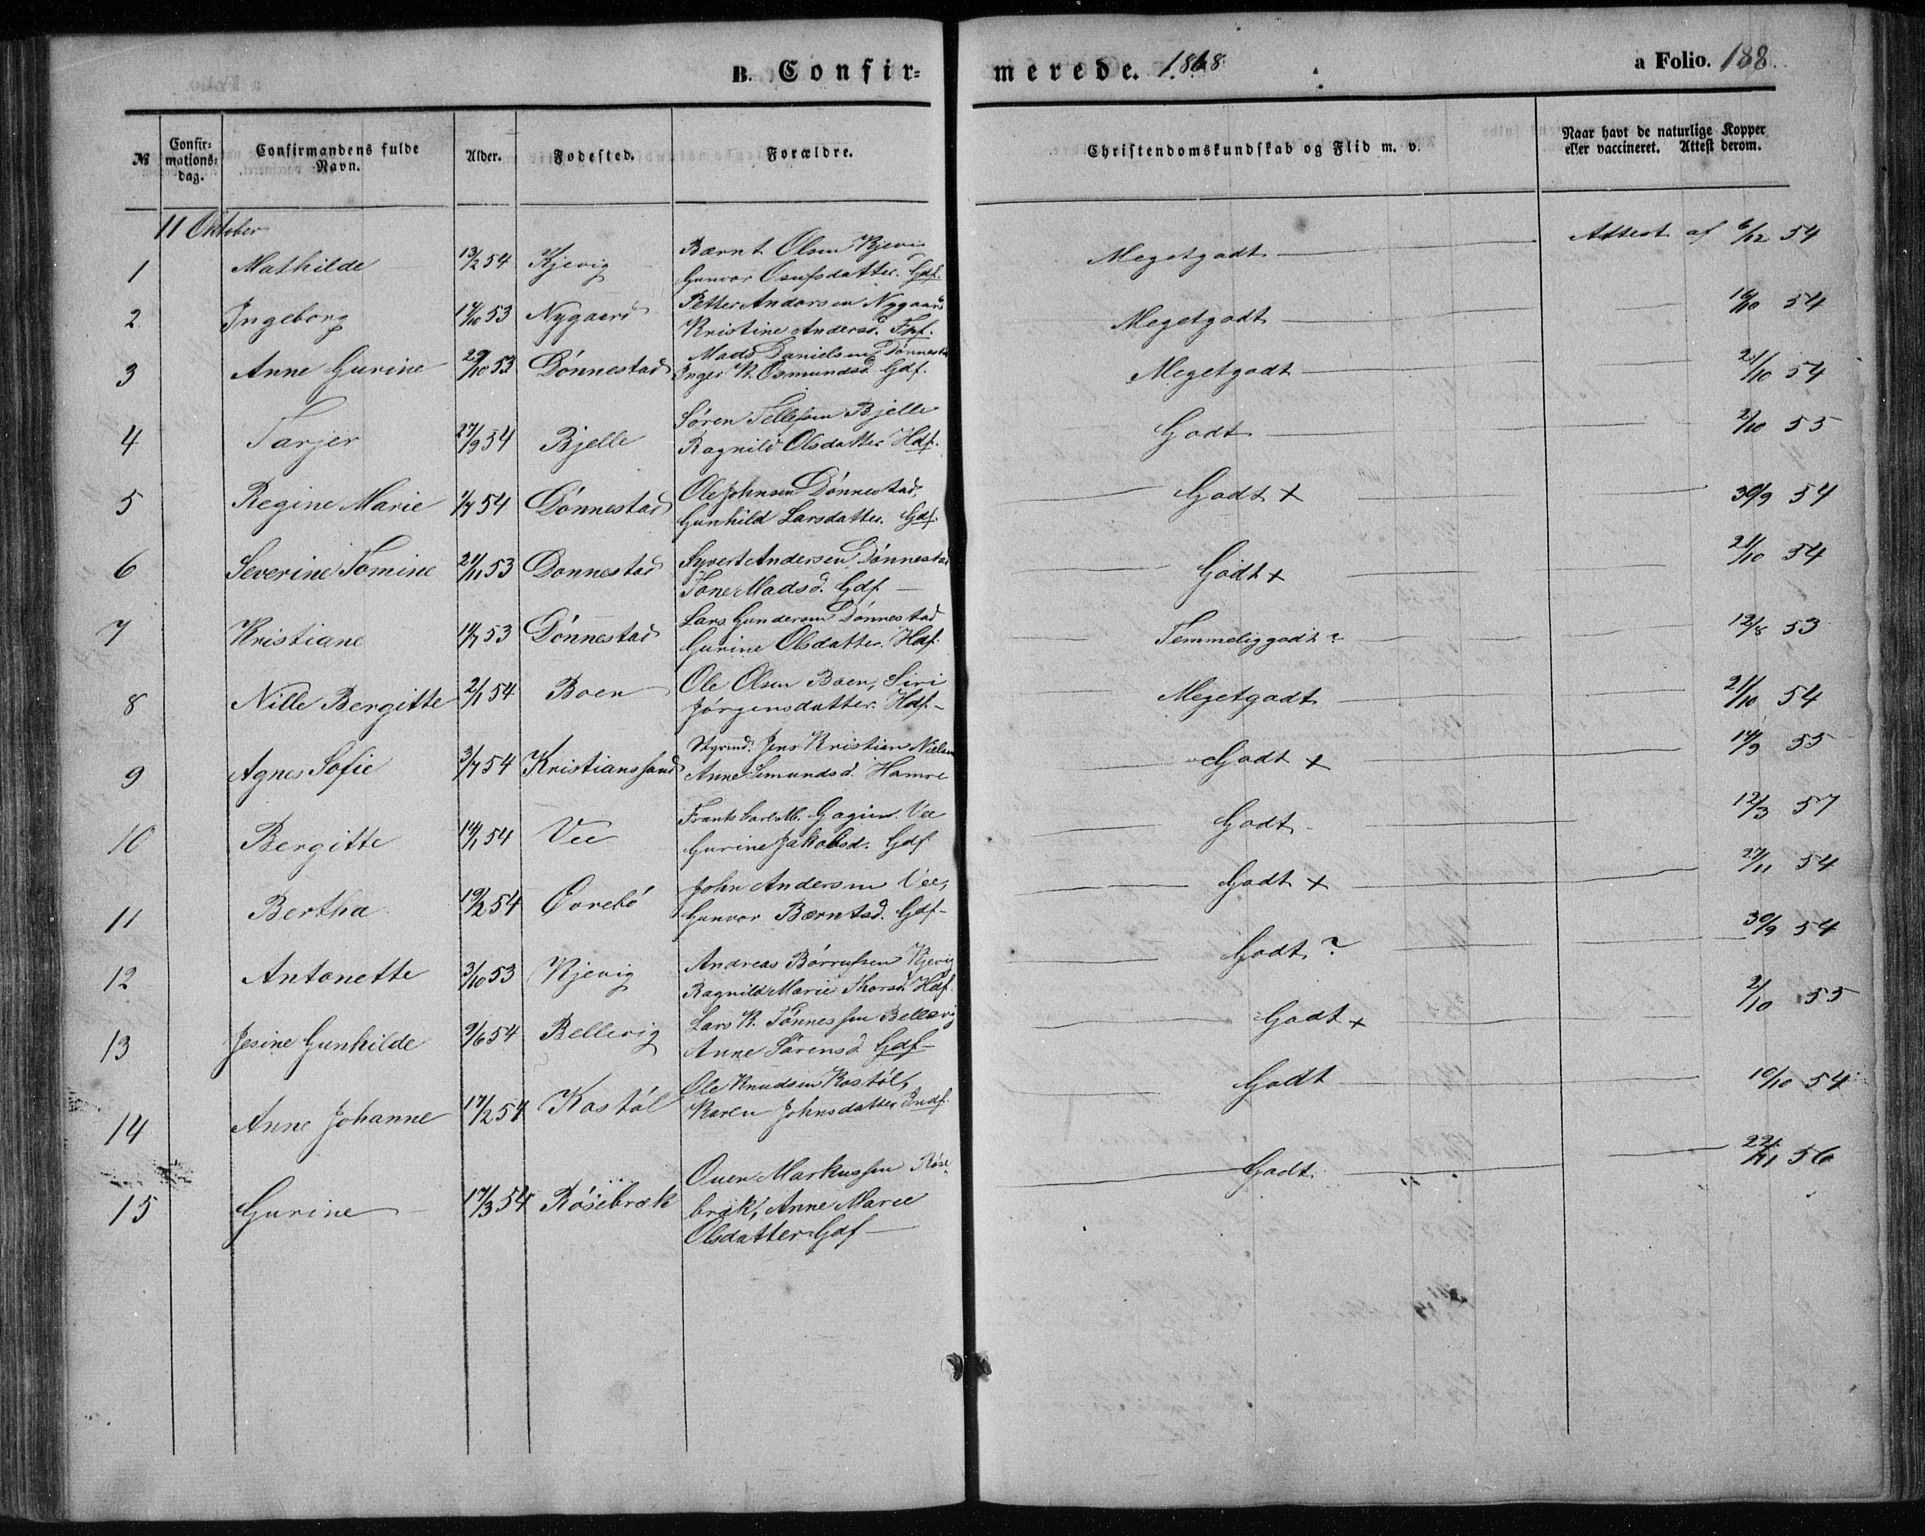 B. Confir-merede. 1868 a Folio. 188.
№ Confir-mations-dag. Confirmandens fulde Navn. Alder. Fødested. Forældre. Christendomskundskab og Flid m. v. Naar havt de naturlige Kopper eller vaccineret. Attest derom.
11 Oktober
1 Mathilde 13/2 54 Kjevig Bærnt Olsen Kjevi Gunvor Osufsdatter. Gdf. Megetgodt Attest af 6/12 54
2 Ingeborg 17/10 53 Nygaard Petter Andersen Nygaard Kristine Andersd. Fpf. Megetgodt 16/10 54
3 Anne Gurine 29/10 53 Dønnestad Mads Danielsen Dønnestad Inger K. Osmundsd. Gdf. Megetgodt 21/10 54
4 Tarjer 27/9 54 Bjelle Søren Tellefsen Bjelle Ragnild Olsdatter Hdf. Godt 2/10 55
5 Regine Marie 1/7 54 Dønnestad Ole Johnsen Dønnestad, Gunhild Larsdatter. Gdf. Godt + 30/9 54
6 Severine Tomine 21/11 53 Donnestad Syvert Andersen Dønnestad Tone Madsd. Gdf. Godt + 21/10 54
7 Kristiane 14/7 53 Dønnestad Lars Gundersen Dønnestad Gurine Olsdatter. Hdf. Temmeliggodt ? 12/8 53
8 Nille Bergitte 2/1 54 Boen Ole Olsen Boen, Siri Jørgensdatter. Hdf. Megetgodt 21/10 54
9 Agnes Sofie 3/7 54 Kristianssand Styrmd. Jens Kristian Nielsen Anne Simundsd. Hamre Godt + 14/9 55
10 Bergitte 14/1 54 Vee Frants Carl M. Gogiin. Vee Gurine Jakobsd. Gdf Godt 12/3 57
11 Bertha 19/2 54 Øvrebø John Andersen Vee, Gunvor Bærntsd. Gdf. Godt + 27/11 54
12 Antonette 3/10 53 Kjevig Andreas Børrufsen Kjevig Ragnild Marie Thorsd. Hdf. Godt ? 30/9 54
13 Jesine Gunhilde 9/6 54 Bellevig Lars K. Tønnessen Bellevig Anne Sørensd. Gdf Godt + 2/10 55
14 Anne Johanne 17/2 54 Kostøl Ole Knudsen Kostøl, Karen Johnsdatter Indf. Godt 10/10 54
15 Gurine 17/3 54 Røsebræk Ouen Markussen Røse-bræk, Anne Marie Olsdatter Gdf Godt 22/11 56